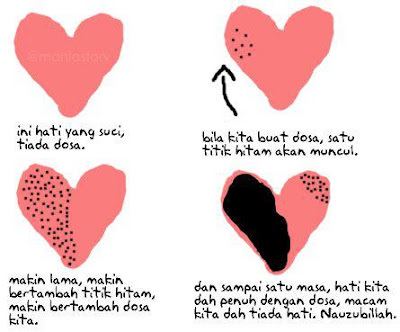 @maniastary
ini hati yang suci,
tiada dosa.
bila kita buat dosa, satu
titik hitam akan muncul.
makin lama, makin
bertambah titik hitam,
makin bertambah dosa
kita.
dan sampai satu masa, hati kita
dah penuh dengan dosa, macam
kita dah tiada hati. Nauzubillah.